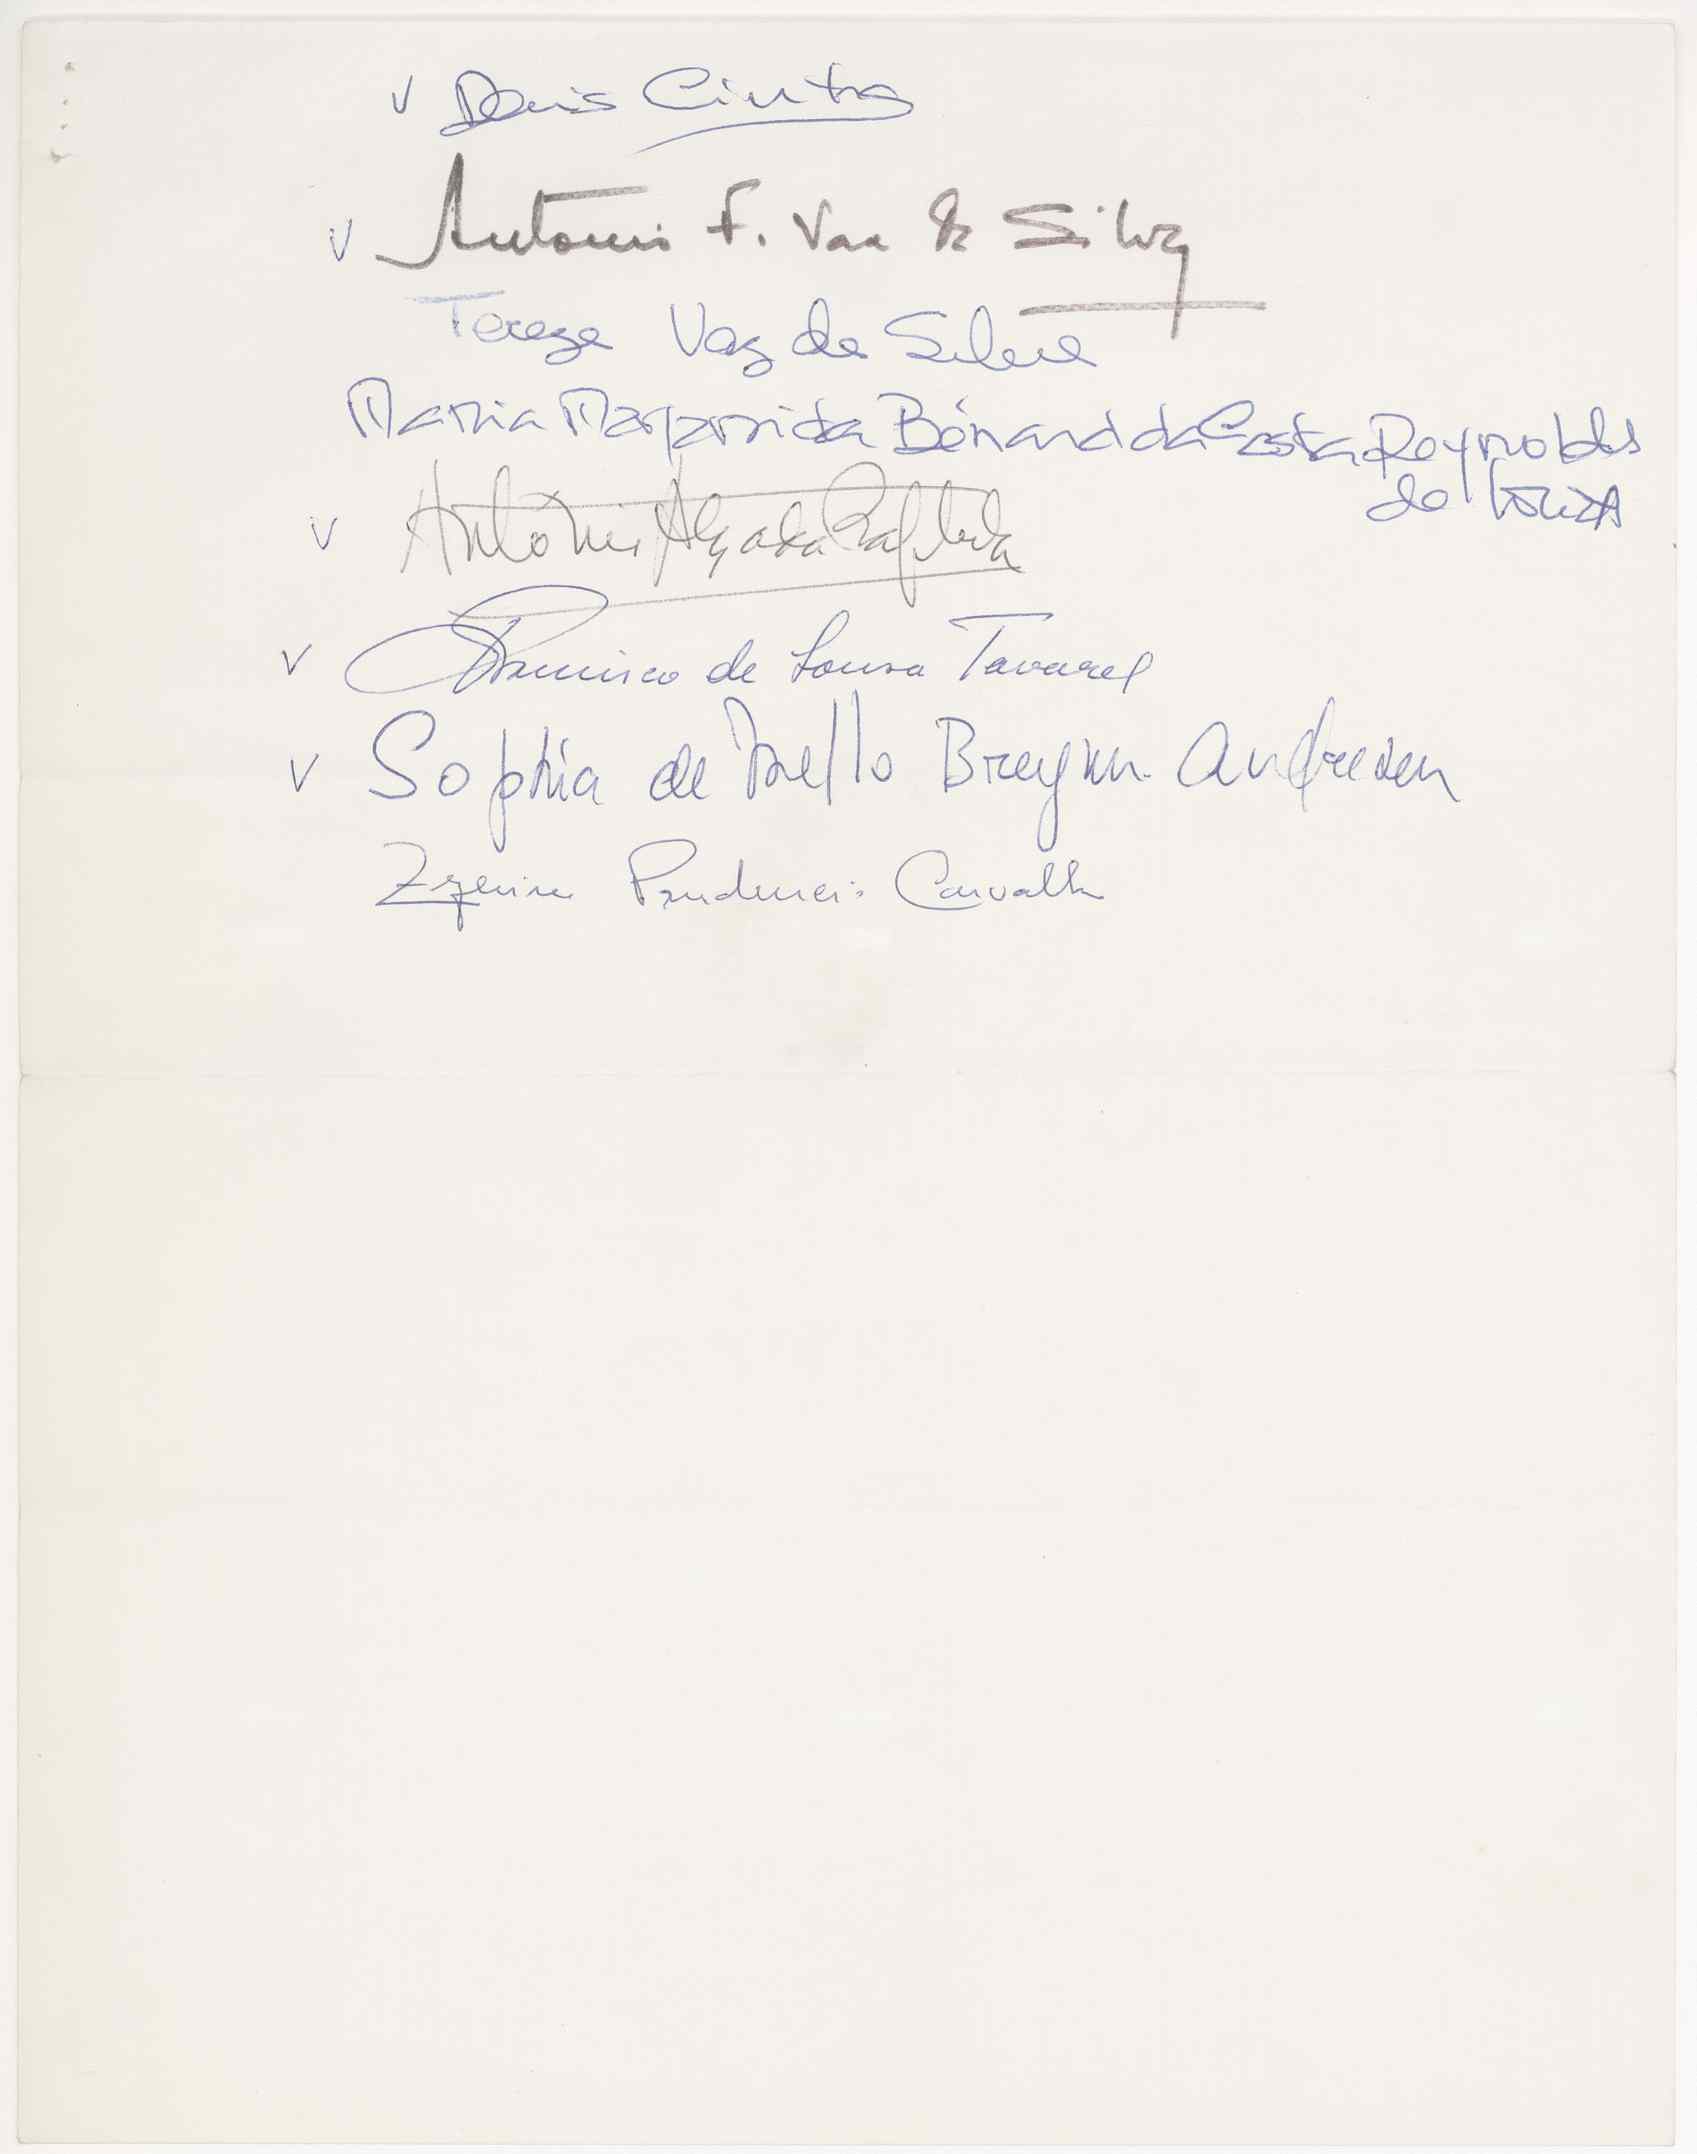 v Denis Cintra
v António F. Vaz de Silva
Tereza Vaz da Silva
Maria Margarida Bénard da Costa Reynolds
de Souza
v António Alçada Baptista
v Francisco de Sousa Tavares
v Sophia de Mello Breyner Andresen
Prudencio Carvalho